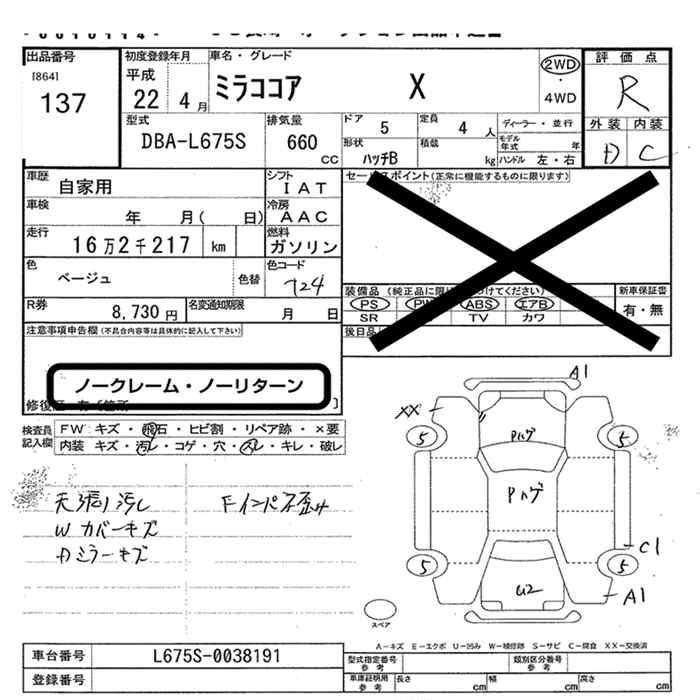 出品番号 初度登録年月 車名・グレード 2WD・4WD 評価点
[864] 137 平成 22 4月 ミラココア X R
外装 内装
D C
型式 排気量 ドア 5 定員 4人 ディーラー・並行
DBA-L675S 660cc 形状 ハッチB 積載 kg モデル年式 年
ハンドル 左・右
車歴 自家用 シフト IAT セールスポイント(正常に機能するものに限ります)
車検 年 月( 日) 冷房 AAC
走行 16万2千217 km 燃料 ガソリン
色 ベージュ 色替 色コード T24
装備品(純正品に限り つけてください) 新車保証書
PS PW ABS エアB 有・無
SR TV カワ
R券 8,730円 名変通知期限 月 日 後日品
注意事項申告欄(不具合内容等は具体的に記入して下さい)
ノークレーム・ノーリターン
修復歴 有〔箇所 〕
検査員記入欄 FW キズ・飛石・ヒビ割・リペア跡・×要
内装 キズ・汚レ・コゲ・穴・スレ・キレ・破レ
天張り汚し Fインパネ歪み
Wカバーキズ
Dミラーキズ
A1
XX
5 Pハゲ 5
Pハゲ
C1
5 U2 5
A1
スペア
A-キズ E-エクボ U-凹み W-補修跡 S-サビ C-腐食 XX-交換済
車台番号 L675S-0038191 型式指定番号 参考 類別区分番号 参考
登録番号 車庫証明用 参考 長さ cm 幅 cm 高さ cm